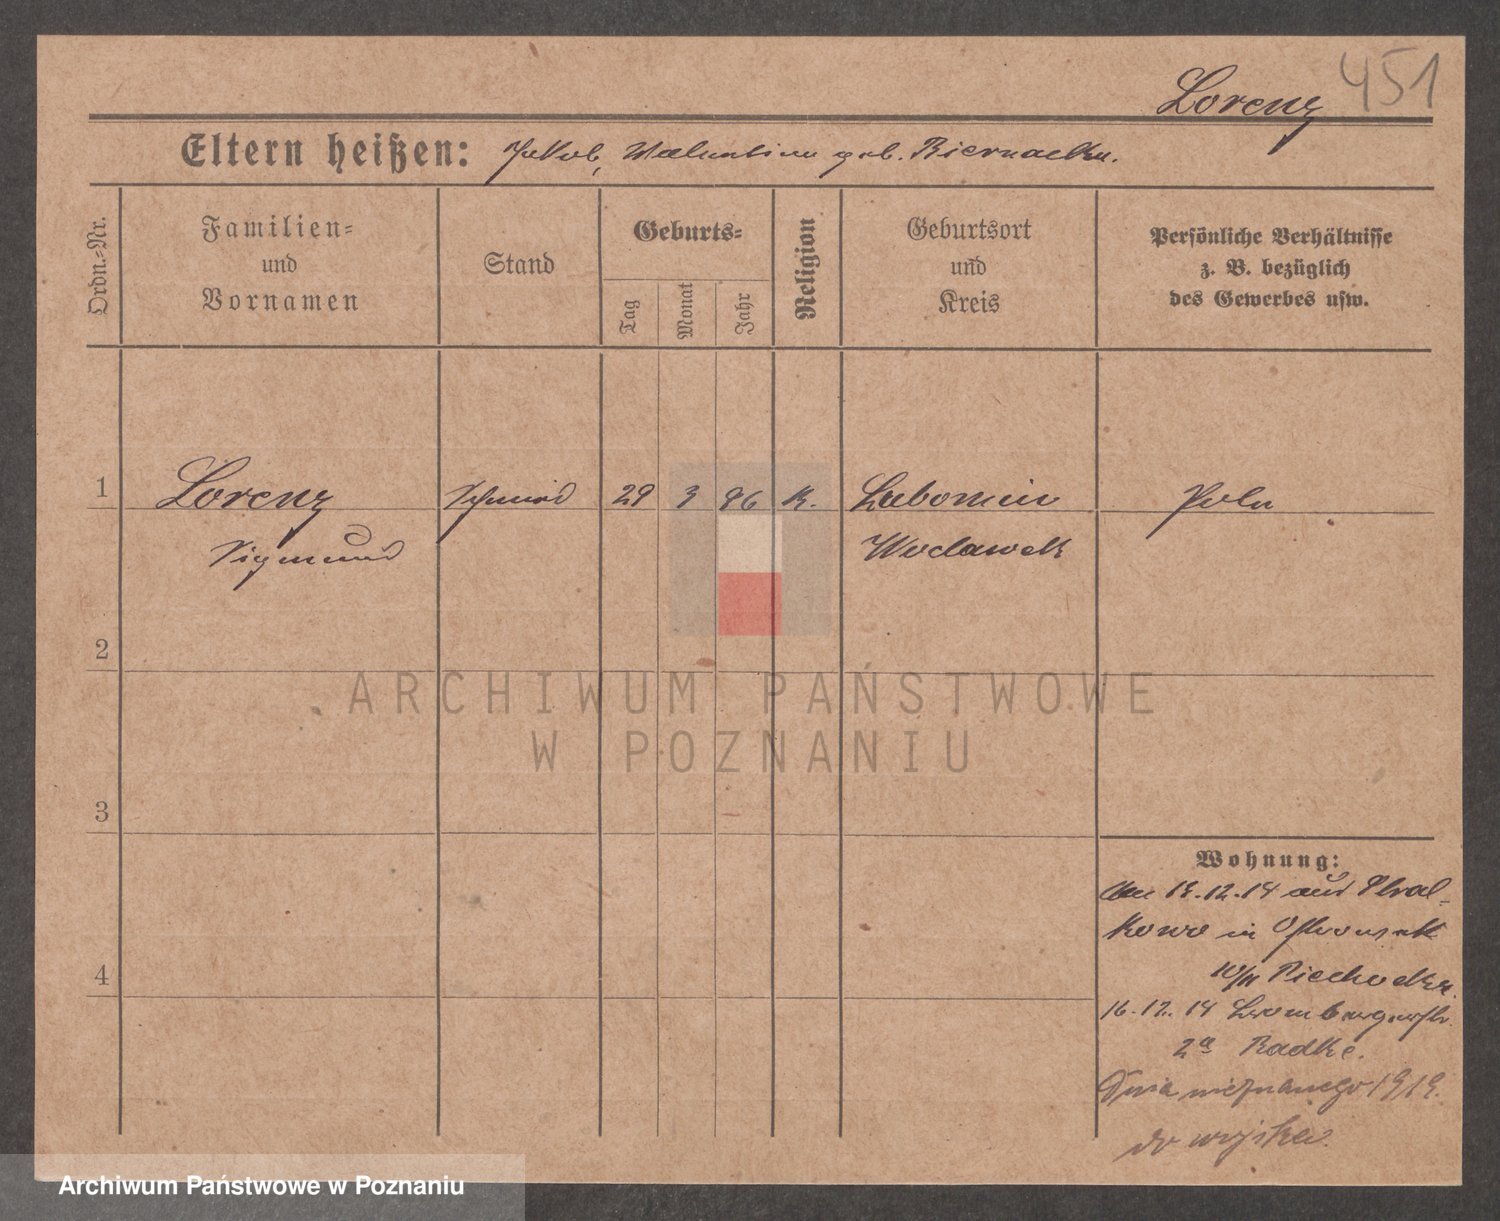 Lorenz 451
Eltern heißen: Jakob, Valentina geb. Biernacka.
Ordn.-Nr.
Familien=
und
Vornamen
Stand
Geburts=
Tag
Monat
Jahr
Religion
Geburtsort
und
Kreis
Persönliche Verhältnisse
z. B. bezüglich
des Gewerbes usw.
1 Lorenz Schmied 29 3 86 K. Lubomin Pole
Sigmund Woclawek
2
ARCHIWUM PAŃSTWOWE
W POZNANIU
3
Wohnung:
12.14 aus
kowo in
10/11 Piechocka.
4
16.12.14 Brombergerstr.
2a Radke.
Dnia nieznanego 1919.
do wojska.
Archiwum Państwowe w Poznaniu